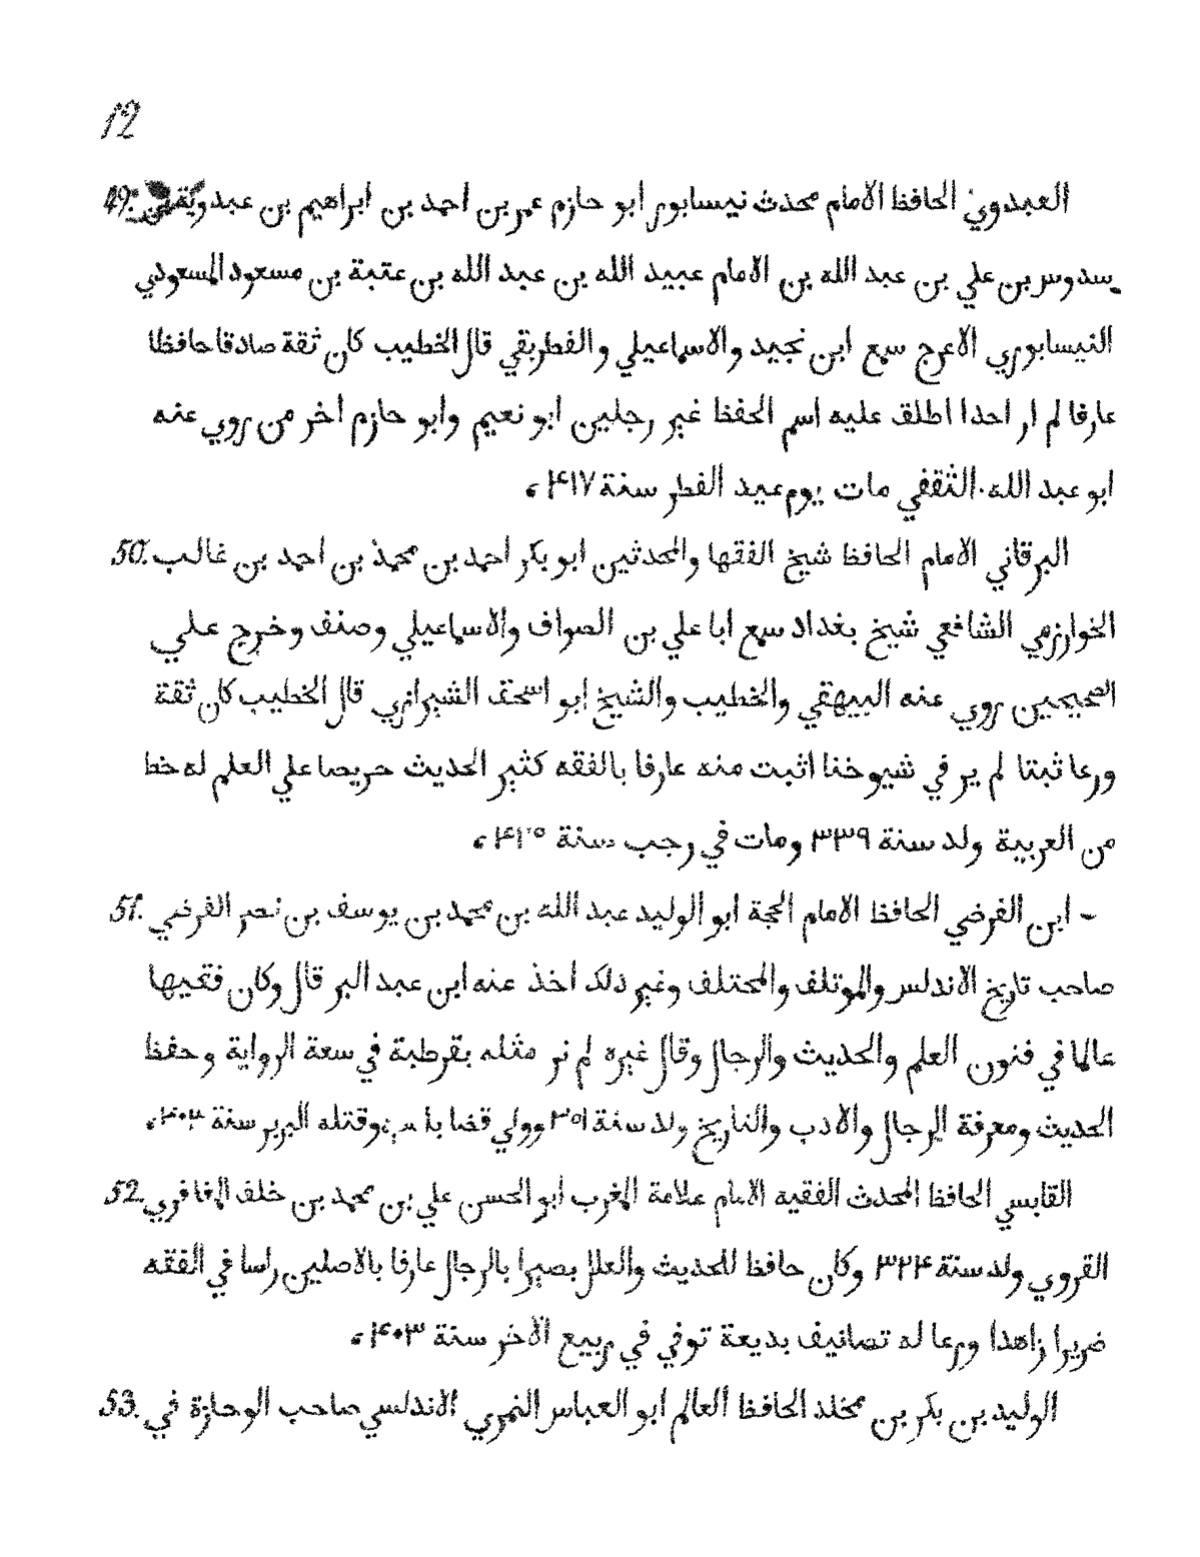 12
49. العبدوي الحافظ الامام محدث نيسابور ابو حازم عمر بن احمد بن ابراهيم بن عبدويه بن
سدوس بن علي بن عبد الله بن الامام عبيد الله بن عبد الله بن عتبة بن مسعود المسعودي
النيسابوري الاعرج سمع ابن نجيد والاسماعيلي والفطريقي قال الخطيب كان ثقة صادقا حافظا
عارفا لم ار احدا اطلق عليه اسم الحفظ غير رجلين ابو نعيم وابو حازم اخر من روي عنه
ابو عبد الله الثقفي مات يوم عيد الفطر سنة ۴۱۷
50. البرقاني الامام الحافظ شيخ الفقها والمحدثين ابو بكر احمد بن محمد بن احمد بن غالب
الخوارزمي الشافعي شيخ بغداد سمع ابا علي بن الصواف والاسماعيلي وصنف وخرج علي
الصحيحين روي عنه البيهقي والخطيب والشيخ ابو اسحق الشيرازي قال الخطيب كان ثقة
ورعا ثبتا لم ير في شيوخنا اثبت منه عارفا بالفقه كثير الحديث حريصا علي العلم له خط
من العربية ولد سنة ۳۳۹ ومات في رجب سنة ۴۲۵
51. ابن الفرضي الحافظ الامام الحجة ابو الوليد عبد الله بن محمد بن يوسف بن نصر الفرضي
صاحب تاريخ الاندلس والموتلف والمختلف وغير ذلك اخذ عنه ابن عبد البر قال وكان فقيها
عالما في فنون العلم والحديث والرجال وقال غيره لم نر مثله بقرطبة في سعة الرواية وحفظ
الحديث ومعرفة الرجال والادب والتاريخ ولد سنة ۳۵۱ وولي قضا وقتله البربر سنة ۴۰۳
52. القابسي الحافظ المحدث الفقيه الامام علامة المغرب ابو الحسن علي بن محمد بن خلف المغافري
القروي ولد سنة ۳۲۴ وكان حافظا للحديث والعلل بصيرا بالرجال عارفا بالاصلين راسا في الفقه
ضريرا زاهدا ورعا له تصانيف بديعة توفي في ربيع الآخر سنة ۴۰۳
53. الوليد بن بكر بن مخلد الحافظ العالم ابو العباس النمري الاندلسي صاحب الوجازة في